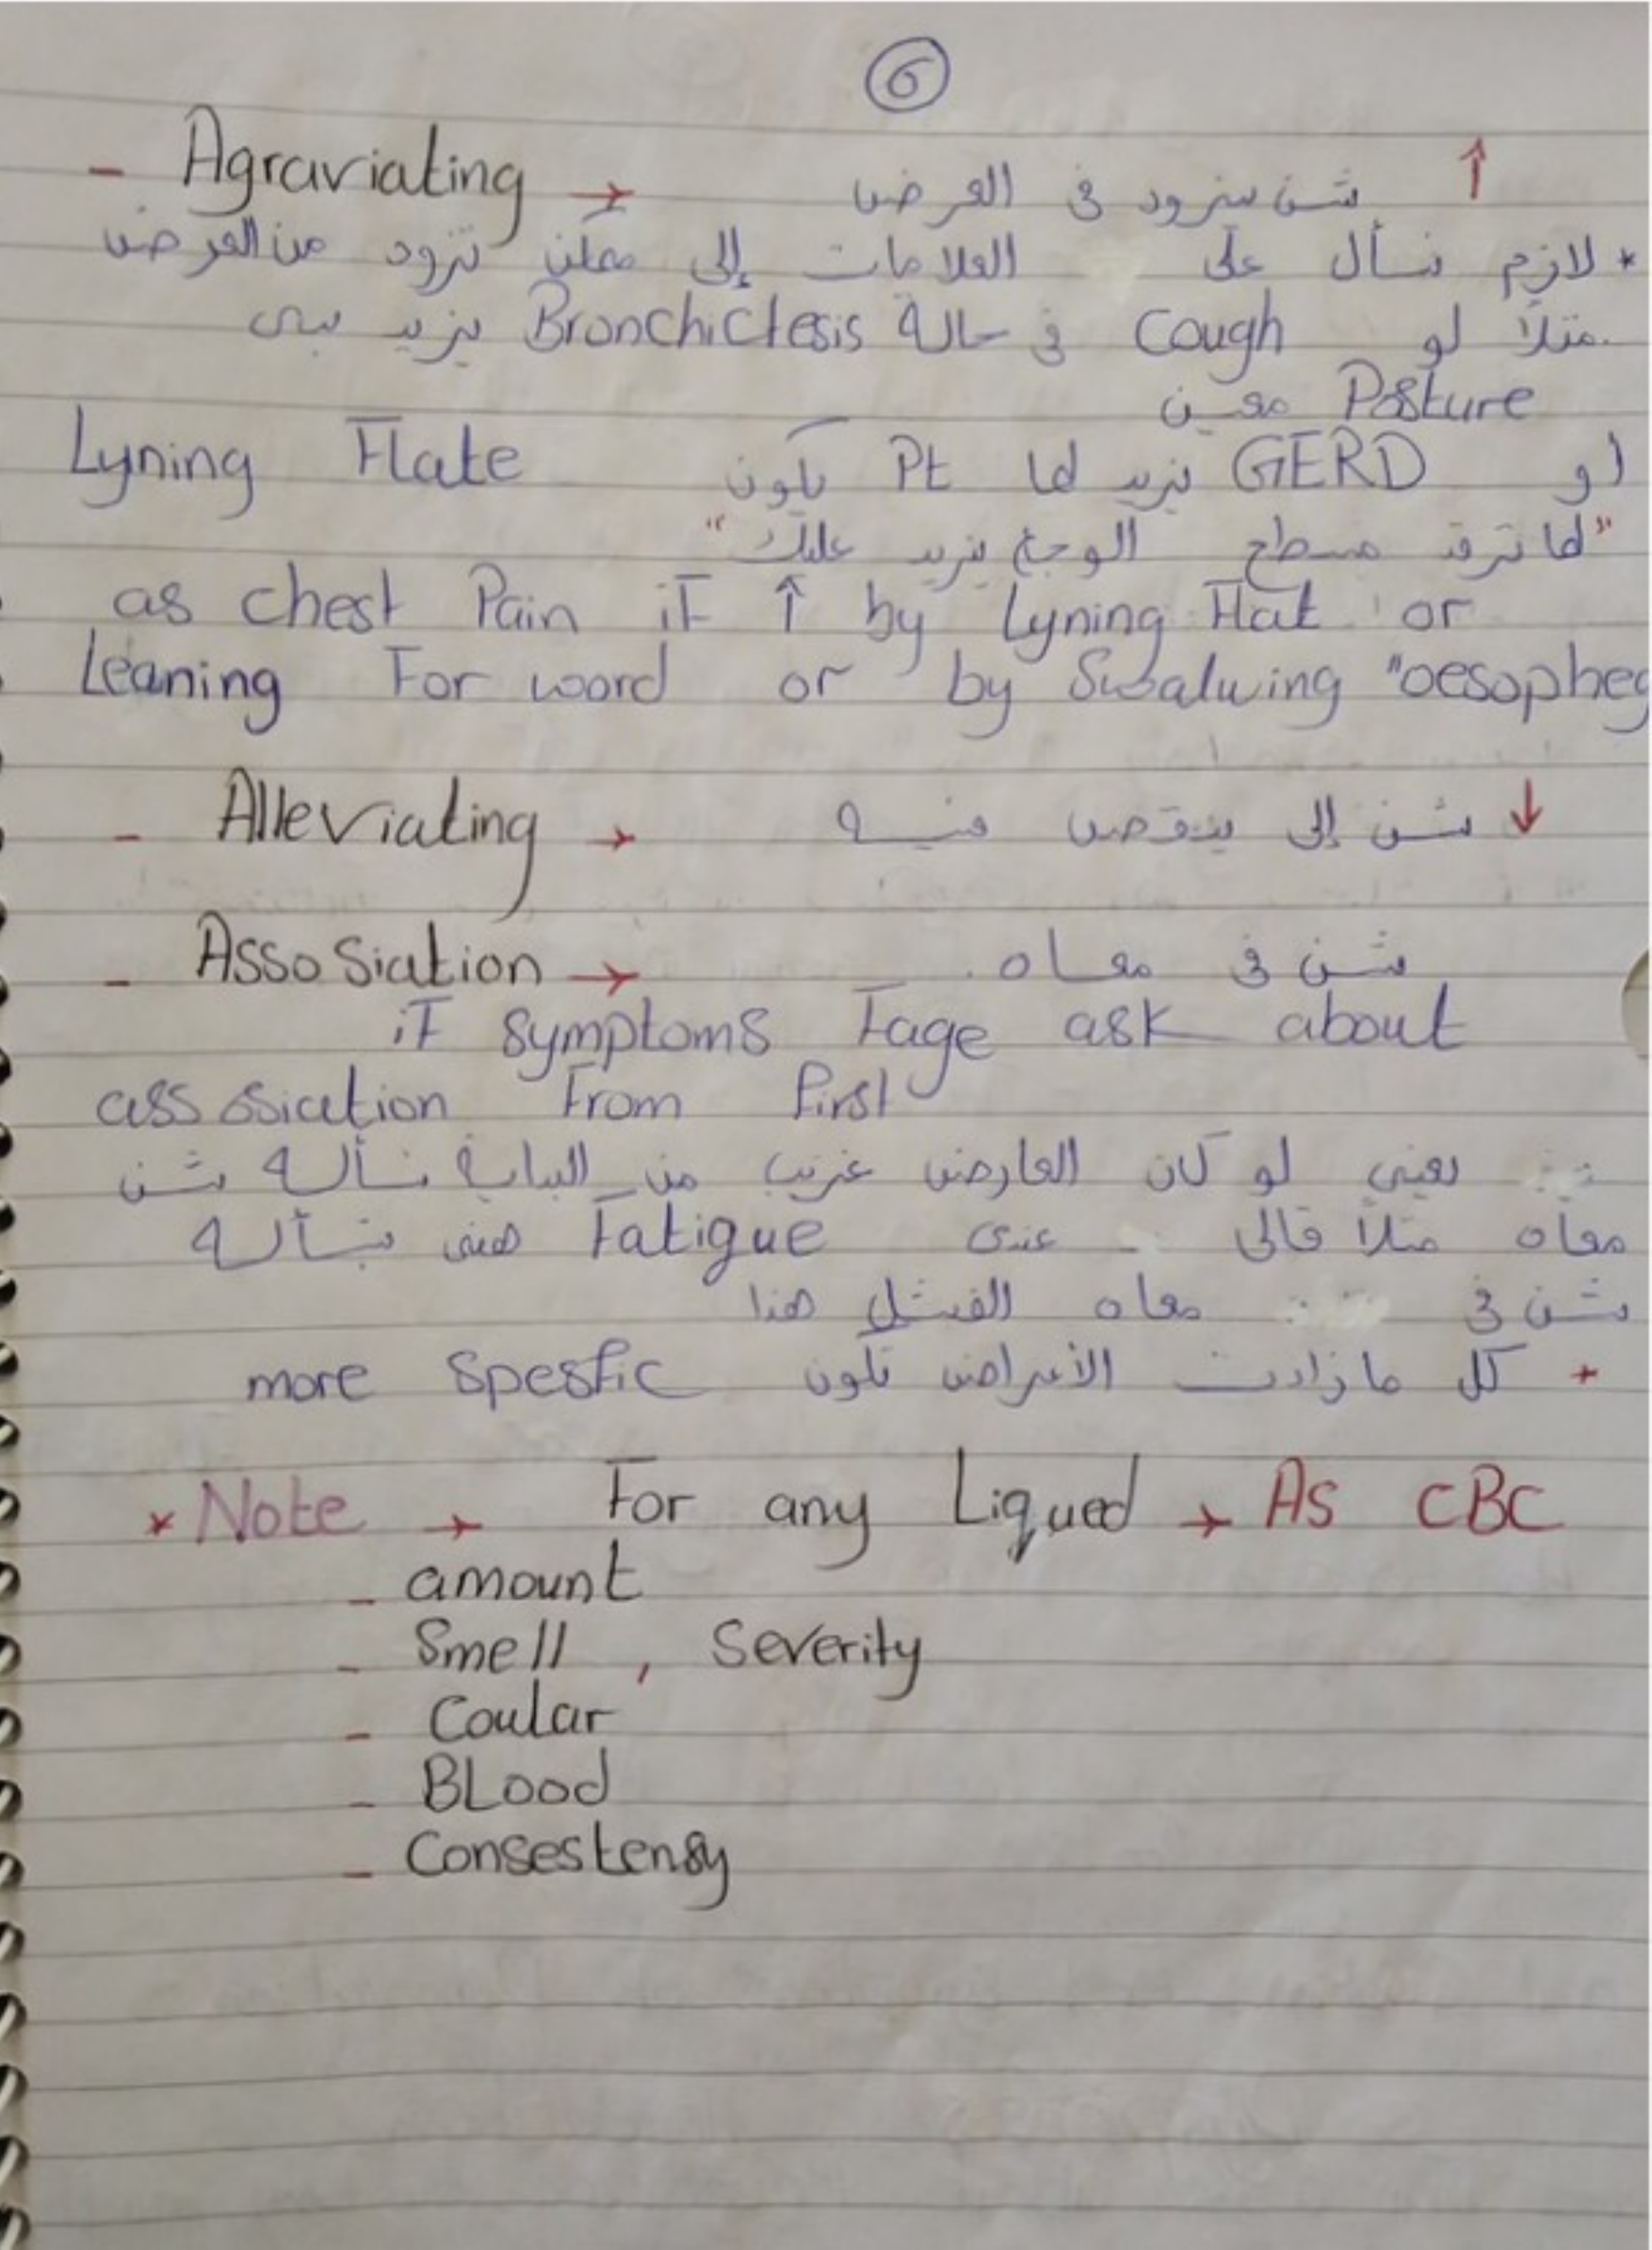 6
- Agraviating → شن يزود في العرض ↑
* لازم نسأل على العلامات إلى ممكن تزود من العرض
مثلاً لو Cough في حالة Bronchictesis يزيد
Posture معين
لو GERD يزيد لما Pt يكون Lyning Flate
"لما ترقد مسطح الوجع يزيد عليك"
as chest Pain if ↑ by Lyning Flat or
Leaning For word or by Swalwing "oesopheg
- Alleviating → شن إلى ينقص فيه ↓
- Assosiation → شن في معاه.
if symptoms Fage ask about
assosiation From First
يعني لو كان العارض غريب من البداية نسأله شن
معاه مثلاً قالى عندى Fatigue هنى نسأله
شن في معاه الفشل هذا
* كل ما زادت الأعراض تكون more spesfic
* Note → For any Liqued → As CBC
- amount
- Smell , Severity
- Coular
- BLood
- Consestensy